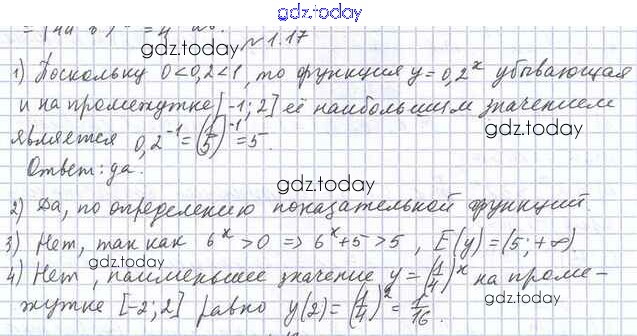 gdz.today
gdz.today
№ 1.17
1) Поскольку 0<0,2<1, то функция y=0,2^x убывающая
и на промежутке [-1; 2] её наибольшим значением
gdz.today
является 0,2^-1 = (1/5)^-1 = 5.
Ответ: да.
gdz.today
2) Да, по определению показательной функций.
3) Нет, так как 6^x > 0 => 6^x+5 > 5, E(y) = (5; +∞).
gdz.today
4) Нет, наименьшее значение y = (1/4)^x на проме-
gdz.today
жутке [-2; 2] равно y(2) = (1/4)^2 = 1/16.